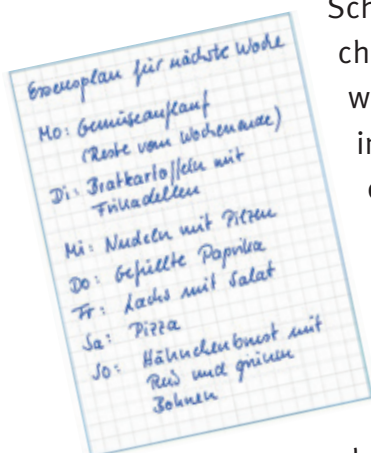 Essensplan für nächste Woche
Mo: Gemüseauflauf
(Reste vom Wochenende)
Di: Bratkartoffeln mit
Frikadellen
Mi: Nudeln mit Pilzen
Do: Gefüllte Paprika
Fr: Lachs mit Salat
Sa: Pizza
So: Hähnchenbrust mit
Reis und grünen
Bohnen
Sch
ch
w
in